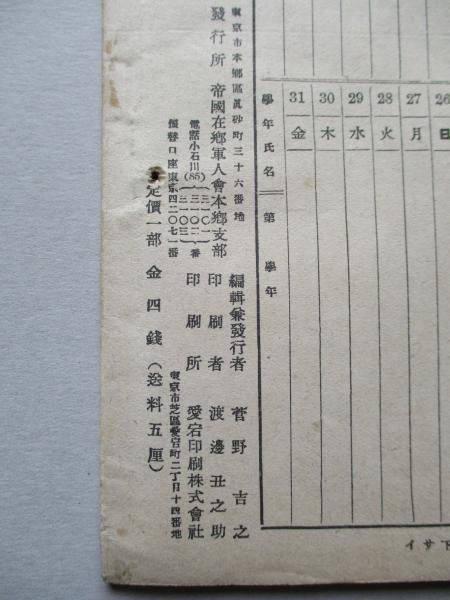 26 27 28 29 30 31
日 月 火 水 木 金
學年氏名
第 學年
下サイ
編輯兼發行者 菅野吉之
印刷者 渡邊丑之助
印刷所 愛宕印刷株式會社
東京市芝區愛宕町二丁目十四番地
東京市本鄕區眞砂町三十六番地
發行所 帝國在鄕軍人會本鄕支部
電話小石川(85)三一〇一 三一〇二 三一〇三番
振替口座東京四二〇七一番
定價一部 金四錢(送料五厘)